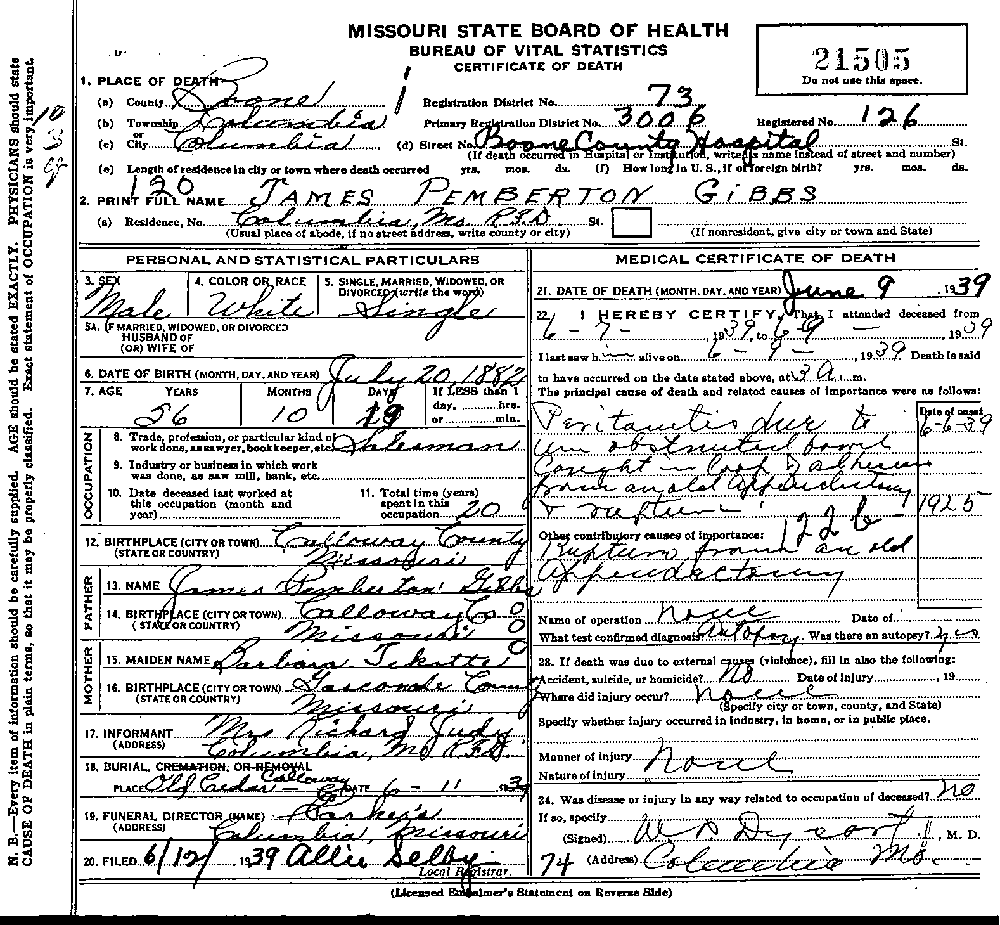 MISSOURI STATE BOARD OF HEALTH
BUREAU OF VITAL STATISTICS
CERTIFICATE OF DEATH
21505
Do not use this space.
N. B.—Every item of information should be carefully supplied. AGE should be stated EXACTLY. PHYSICIANS should state
CAUSE OF DEATH in plain terms, so that it may be properly classified. Exact statement of OCCUPATION is very important.
10
3
1. PLACE OF DEATH
(a) County Boone 1 Registration District No. 73
(b) Township Columbia Primary Registration District No. 3006 Registered No. 126
or
(c) City Columbia (d) Street No. Boone County Hospital St.
(If death occurred in Hospital or Institution, write its name instead of street and number)
(e) Length of residence in city or town where death occurred yrs. mos. ds. (f) How long in U. S., if of foreign birth? yrs. mos. ds.
120
2. PRINT FULL NAME JAMES PEMBERTON GIBBS
(a) Residence, No. Columbia, Mo. R.F.D. St.
(Usual place of abode, if no street address, write county or city) (If nonresident, give city or town and State)
PERSONAL AND STATISTICAL PARTICULARS
3. SEX Male 4. COLOR OR RACE White 5. SINGLE, MARRIED, WIDOWED, OR
DIVORCED (write the word) Single
5A. IF MARRIED, WIDOWED, OR DIVORCED
HUSBAND OF
(OR) WIFE OF
6. DATE OF BIRTH (MONTH, DAY, AND YEAR) July 20 1882
7. AGE YEARS MONTHS DAYS If LESS than 1
day, hrs.
56 10 19 or min.
OCCUPATION
8. Trade, profession, or particular kind of
work done, as sawyer, bookkeeper, etc. Salesman
9. Industry or business in which work
was done, as saw mill, bank, etc.
10. Date deceased last worked at
this occupation (month and
year)
11. Total time (years)
spent in this
occupation 20
12. BIRTHPLACE (CITY OR TOWN) Calloway County
(STATE OR COUNTRY) Missouri
FATHER
13. NAME James Pemberton Gibbs
14. BIRTHPLACE (CITY OR TOWN) Calloway Co. 0
(STATE OR COUNTRY) Missouri 0
MOTHER
15. MAIDEN NAME Barbara 0
16. BIRTHPLACE (CITY OR TOWN) Gasconade County
(STATE OR COUNTRY) Missouri
17. INFORMANT Mrs Richard Judy
(ADDRESS) Columbia, Mo R.F.D.
18. BURIAL, CREMATION, OR REMOVAL
PLACE Old Cedar - Calloway Co DATE 6 - 11 1939
19. FUNERAL DIRECTOR (NAME) Parker's
(ADDRESS) Columbia, Missouri
20. FILED 6/12/ 1939 Allie Selby
Local Registrar.
MEDICAL CERTIFICATE OF DEATH
21. DATE OF DEATH (MONTH, DAY, AND YEAR) June 9, 1939
22. I HEREBY CERTIFY, That I attended deceased from
6 - 7 - 1939, to 6-9 - 1939
I last saw him alive on 6 - 9 -, 1939 Death is said
to have occurred on the date stated above, at 3 A. m.
The principal cause of death and related causes of importance were as follows:
Date of onset
Peritonitis due to 6-6-39
an obstructed bowel
caught in loop of adhesions
from an old appendectomy
& rupture 1925
122b
Other contributory causes of importance:
Rupture from an old
Appendectomy
Name of operation none Date of
What test confirmed diagnosis? Autopsy Was there an autopsy? yes
23. If death was due to external causes (violence), fill in also the following:
Accident, suicide, or homicide? No Date of injury, 19
Where did injury occur? none
(Specify city or town, county, and State)
Specify whether injury occurred in industry, in home, or in public place.
Manner of injury None
Nature of injury
24. Was disease or injury in any way related to occupation of deceased? No
If so, specify
(Signed) W S Dysart, M. D.
74 (Address) Columbia Mo.
(Licensed Embalmer's Statement on Reverse Side)